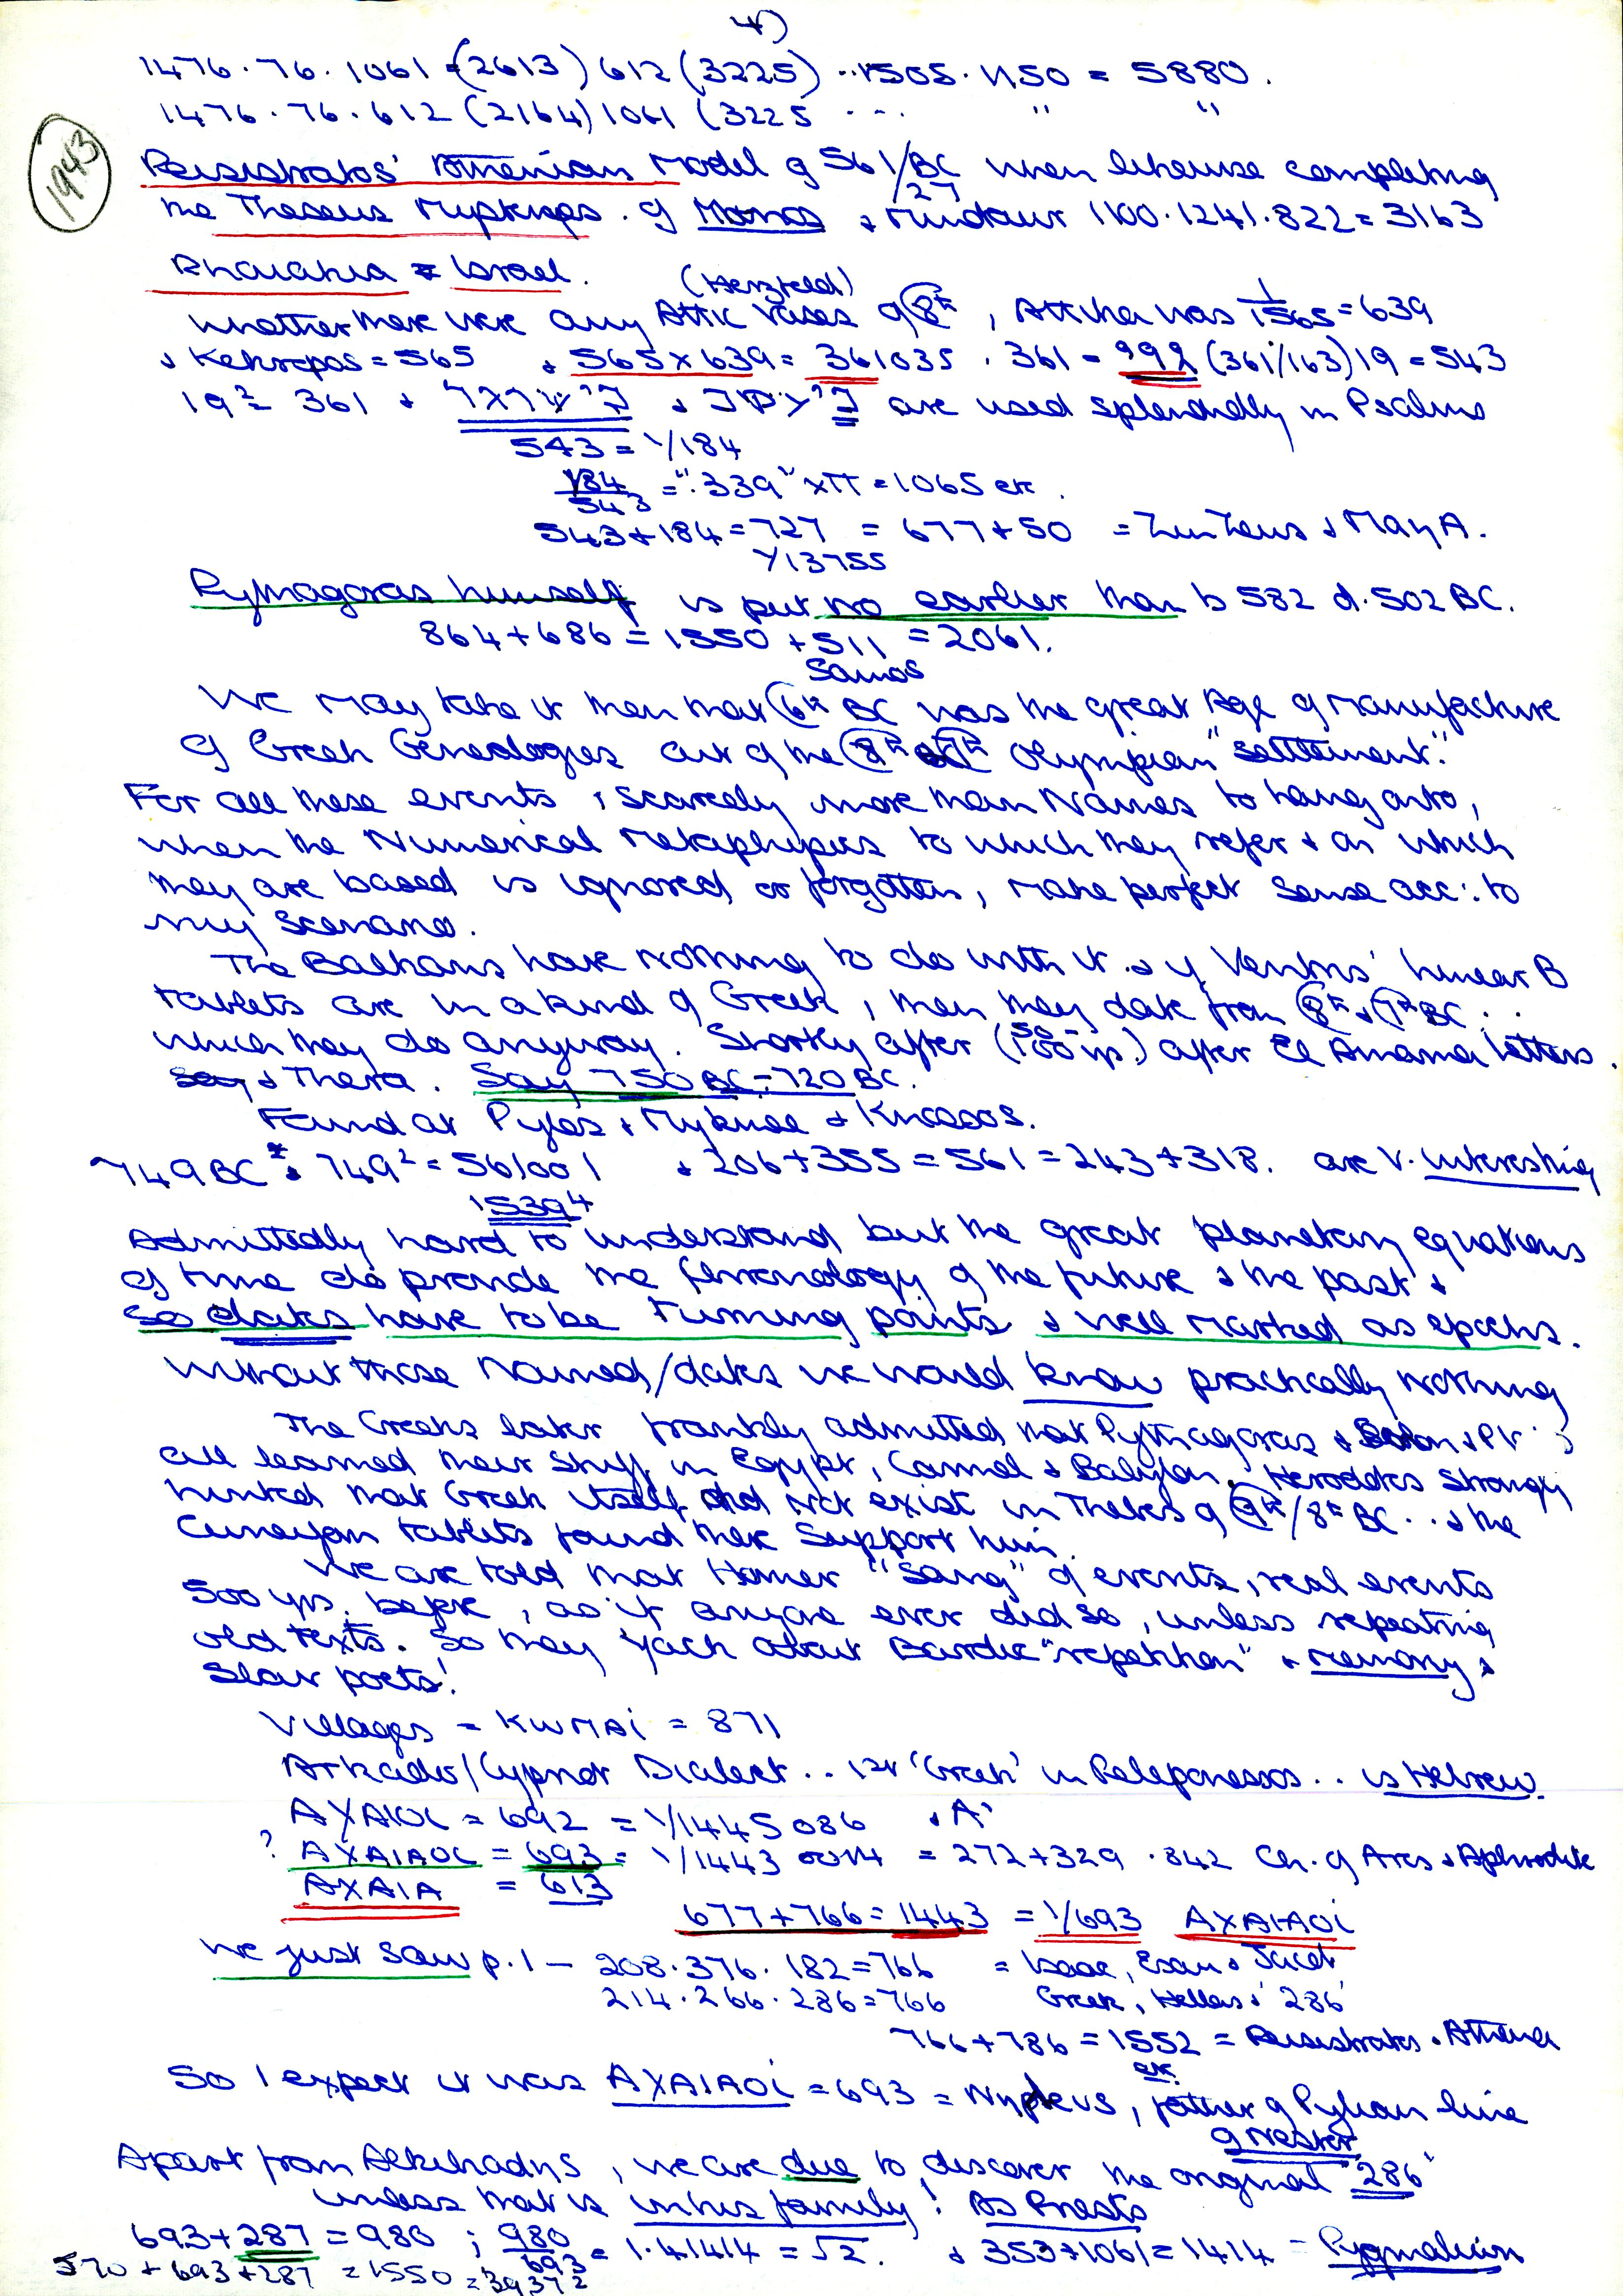 4)
1476.76.1061 (2613) 612 (3225) .. 1505.1150 = 5880.
1476.76.612 (2164) 1061 (3225 ... " "
1943
Peisistratos' Athenian Model of 561/BC when likewise completing
27
the Theseus Mypknps. of & Minotaur 1100.1241.822 = 3163
= Israel.
(Herzfeld)
Whether there were any Attic Vases of 8th, Attika was 1/1565 = 639
& Kekropas = 565 & 565 x 639 = 361035 . 361 - 999 (361/163) 19 = 543
19² = 361 & & are used splendidly in Psalms
543 = 1/184
184/543 = ".339" x π = 1065 etc.
543 + 184 = 727 = 677 + 50 = Zeus & May A.
1/13755
Pythagoras himself is put no earlier than b 582 d. 502 BC.
864 + 686 = 1550 + 511 = 2061.
Samos
We may take it then that 6th BC was the great Age of Manufacture
of Greek Genealogies out of the 8th 7th Olympian "Settlement".
For all these events, scarcely more than Names to hang onto,
when the Numerical Metaphysics to which they refer & on which
they are based is ignored or forgotten, make perfect sense acc: to
my Scenario.
The Balkans have nothing to do with it & if Ventris' Linear B
tablets are in a kind of Greek, then they date from 8th & 7th BC ..
which they do anyway. Shortly after (50-100 yrs.) after El Amarna letters.
& Thera. Say 750 BC - 720 BC.
Found at Pylos & Myknae & Knossos.
749 BC & 749² = 561001 & 206 + 355 = 561 = 243 + 318. are v. interesting
15394
Admittedly hard to understand but the great planetary equations
of time do provide the of the future & the past &
so dates have to be turning points & well marked as epochs.
Without these Named/dates we would know practically nothing
The Greeks later frankly admitted that Pythagoras & Solon &
all learned their stuff in Egypt, Carmel & Babylon. Herodotos strongly
hinted that Greek itself did not exist in Thebes of 9th/8th BC .. & the
Cuneiform tablets found there support him.
We are told that Homer "sang" of events, real events
500 yrs. before, as if anyone ever did so, unless repeating
old texts. So they yack about Bardic "repetition" & memory &
Slav poets!
Villages = KWMAi = 871
Arkado/Cypriot Dialect .. 1st 'Greek' in Peloponessos .. is Hebrew.
AXAIOC = 692 = 1/1445086 & A'
? AXAIAOC = 693 = 1/1443 0014 = 272 + 329 . 842 Ch. of Ares & Aphrodite
AXAIA = 613
677 + 766 = 1443 = 1/693 AXAIAOi
We just saw p.1 — 208.376.182 = 766 = Isaac, Esau & Jacob
214.266.286 = 766 Greek, Hellas & '286'
766 + 786 = 1552 = Peisistratos . Athena
So I expect it was AXAIAOi = 693 = , father of Pylian line
etc.
of Nestor
Apart from Alkibiadns, we are due to discover the original '286'
unless that is in his family! As Priests
693 + 287 = 980 ; 980/693 = 1.41414 = √2. & 353 + 1061 = 1414 = Pygmalion
570 + 693 + 287 = 1550 = 39.37²